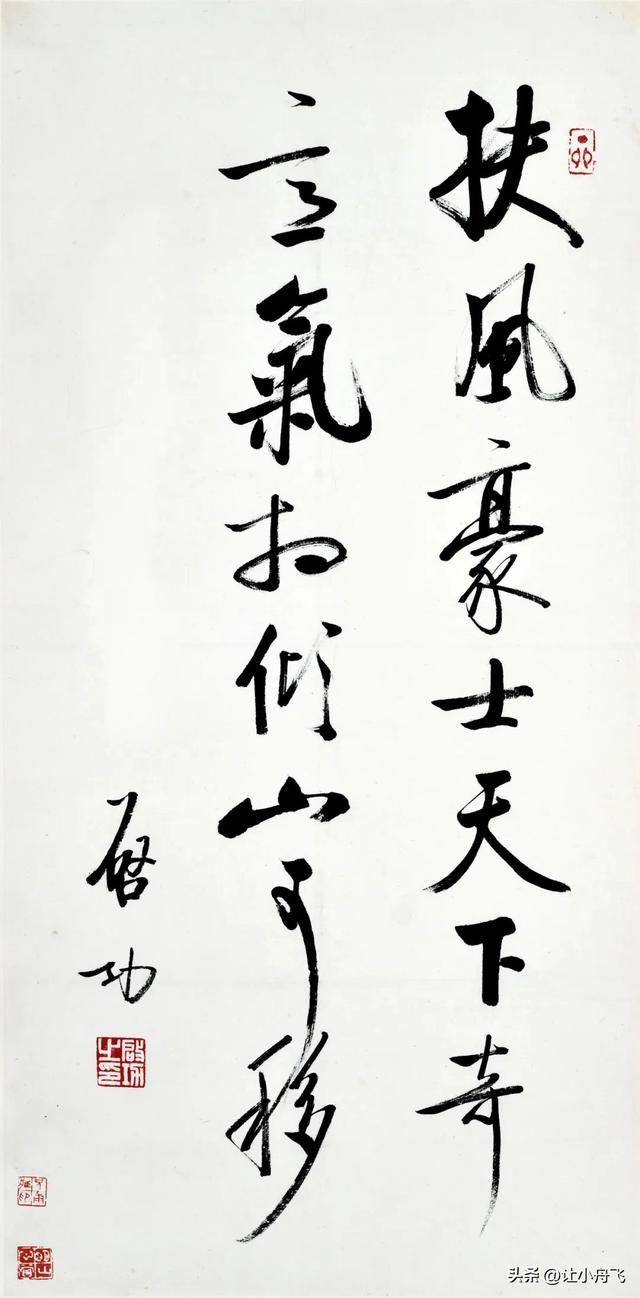 扶風豪士天下奇
意氣相傾山可移
啓功
啟功之印
头条 @让小舟飞